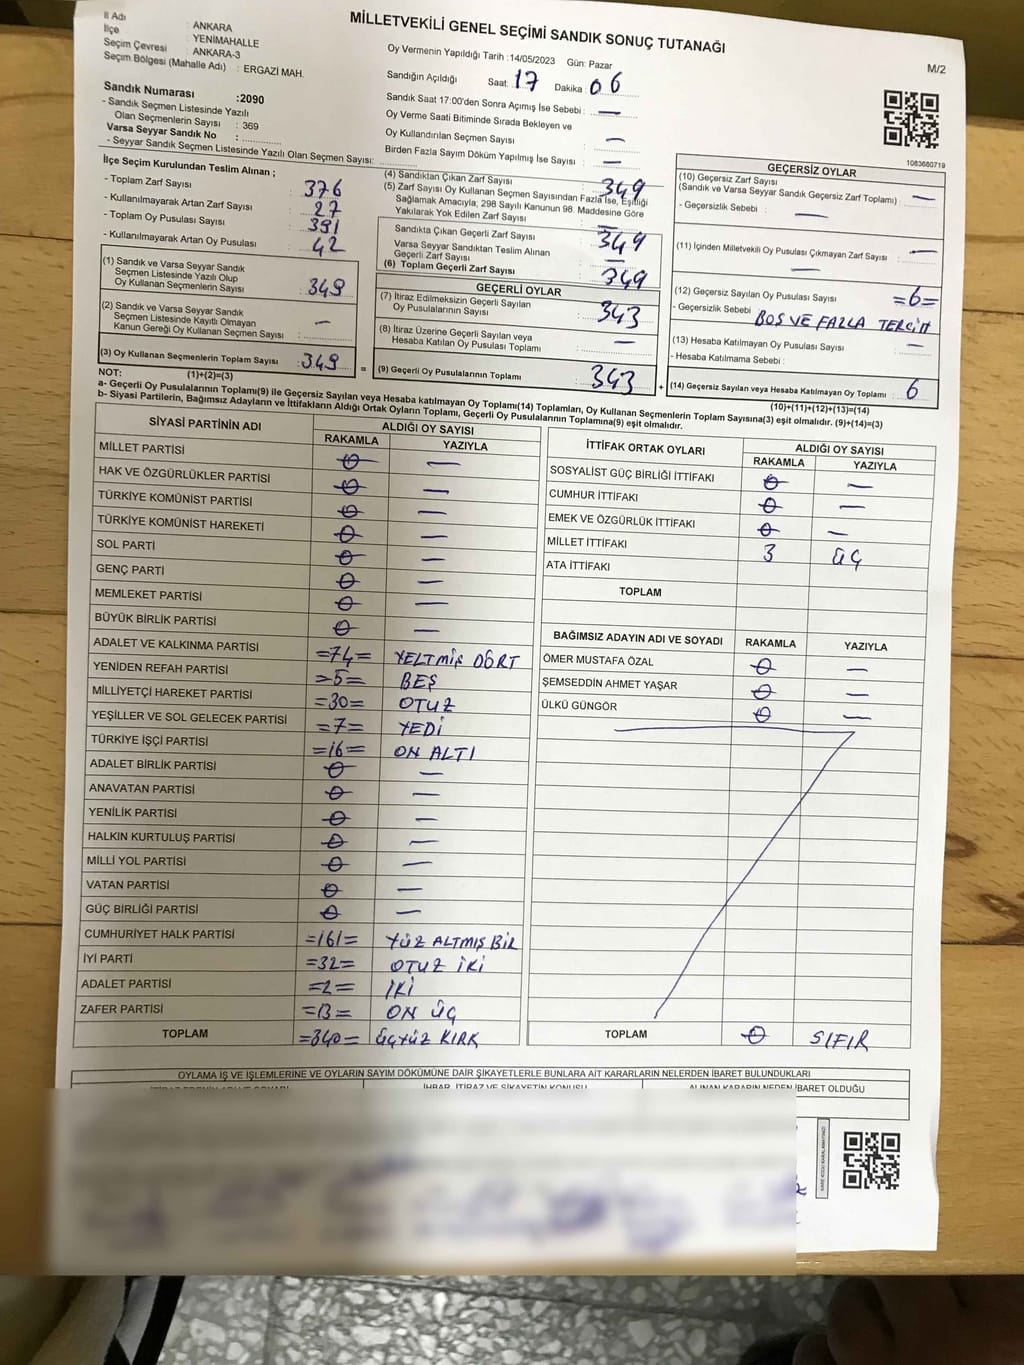 MİLLETVEKİLİ GENEL SEÇİMİ SANDIK SONUÇ TUTANAĞI
M/2
İl Adı : ANKARA
İlçe : YENİMAHALLE
Seçim Çevresi : ANKARA-3
Seçim Bölgesi (Mahalle Adı) : ERGAZİ MAH.
Sandık Numarası :2090
- Sandık Seçmen Listesinde Yazılı
Olan Seçmenlerin Sayısı : 369
Varsa Seyyar Sandık No :
- Seyyar Sandık Seçmen Listesinde Yazılı Olan Seçmen Sayısı:
Oy Vermenin Yapıldığı Tarih :14/05/2023 Gün: Pazar
Sandığın Açıldığı Saat: 17 Dakika : 06
Sandık Saat 17:00'den Sonra Açımış İse Sebebi : —
Oy Verme Saati Bitiminde Sırada Bekleyen ve
Oy Kullandırılan Seçmen Sayısı : —
Birden Fazla Sayım Döküm Yapılmış İse Sayısı : —
1083680719
İlçe Seçim Kurulundan Teslim Alınan ;
- Toplam Zarf Sayısı : 376
- Kullanılmayarak Artan Zarf Sayısı : 27
- Toplam Oy Pusulası Sayısı : 391
- Kullanılmayarak Artan Oy Pusulası : 42
(1) Sandık ve Varsa Seyyar Sandık
Seçmen Listesinde Yazılı Olup
Oy Kullanan Seçmenlerin Sayısı : 349
(2) Sandık ve Varsa Seyyar Sandık
Seçmen Listesinde Kayıtlı Olmayan
Kanun Gereği Oy Kullanan Seçmen Sayısı : —
(3) Oy Kullanan Seçmenlerin Toplam Sayısı : 349
(1)+(2)=(3)
(4) Sandıktan Çıkan Zarf Sayısı : 349
(5) Zarf Sayısı Oy Kullanan Seçmen Sayısından Fazla İse, Eşitliği
Sağlamak Amacıyla, 298 Sayılı Kanunun 98. Maddesine Göre
Yakılarak Yok Edilen Zarf Sayısı : —
Sandıkta Çıkan Geçerli Zarf Sayısı : 349
Varsa Seyyar Sandıktan Teslim Alınan
Geçerli Zarf Sayısı : —
(6) Toplam Geçerli Zarf Sayısı : 349
GEÇERLİ OYLAR
(7) İtiraz Edilmeksizin Geçerli Sayılan
Oy Pusulasının Sayısı : 343
(8) İtiraz Üzerine Geçerli Sayılan veya
Hesaba Katılan Oy Pusulası Toplamı : —
= (9) Geçerli Oy Pusulalarının Toplamı : 343 +
GEÇERSİZ OYLAR
(10) Geçersiz Zarf Sayısı
(Sandık ve Varsa Seyyar Sandık Geçersiz Zarf Toplamı) : —
- Geçersizlik Sebebi : —
(11) İçinden Milletvekili Oy Pusulası Çıkmayan Zarf Sayısı : —
—
(12) Geçersiz Sayılan Oy Pusulası Sayısı : =6=
- Geçersizlik Sebebi : BOŞ VE FAZLA TERCİH
(13) Hesaba Katılmayan Oy Pusulası Sayısı : —
- Hesaba Katılmama Sebebi :
(14) Geçersiz Sayılan veya Hesaba Katılmayan Oy Toplamı : 6
(10)+(11)+(12)+(13)=(14)
NOT:
a- Geçerli Oy Pusulalarının Toplamı(9) ile Geçersiz Sayılan veya Hesaba katılmayan Oy Toplamı(14) Toplamları, Oy Kullanan Seçmenlerin Toplam Sayısına(3) eşit olmalıdır. (9)+(14)=(3)
b- Siyasi Partilerin, Bağımsız Adayların ve İttifakların Aldığı Ortak Oyların Toplamı, Geçerli Oy Pusulalarının Toplamına(9) eşit olmalıdır.
SİYASİ PARTİNİN ADI ALDIĞI OY SAYISI
RAKAMLA YAZIYLA
MİLLET PARTİSİ 0 —
HAK VE ÖZGÜRLÜKLER PARTİSİ 0 —
TÜRKİYE KOMÜNİST PARTİSİ 0 —
TÜRKİYE KOMÜNİST HAREKETİ 0 —
SOL PARTİ 0 —
GENÇ PARTİ 0 —
MEMLEKET PARTİSİ 0 —
BÜYÜK BİRLİK PARTİSİ 0 —
ADALET VE KALKINMA PARTİSİ =74= YETMİŞ DÖRT
YENİDEN REFAH PARTİSİ =5= BEŞ
MİLLİYETÇİ HAREKET PARTİSİ =30= OTUZ
YEŞİLLER VE SOL GELECEK PARTİSİ =7= YEDİ
TÜRKİYE İŞÇİ PARTİSİ =16= ON ALTI
ADALET BİRLİK PARTİSİ 0 —
ANAVATAN PARTİSİ 0 —
YENİLİK PARTİSİ 0 —
HALKIN KURTULUŞ PARTİSİ 0 —
MİLLİ YOL PARTİSİ 0 —
VATAN PARTİSİ 0 —
GÜÇ BİRLİĞİ PARTİSİ 0 —
CUMHURİYET HALK PARTİSİ =161= YÜZ ALTMIŞ BİR
İYİ PARTİ =32= OTUZ İKİ
ADALET PARTİSİ =2= İKİ
ZAFER PARTİSİ =13= ON ÜÇ
TOPLAM =340= ÜÇYÜZ KIRK
İTTİFAK ORTAK OYLARI ALDIĞI OY SAYISI
RAKAMLA YAZIYLA
SOSYALİST GÜÇ BİRLİĞİ İTTİFAKI 0 —
CUMHUR İTTİFAKI 0 —
EMEK VE ÖZGÜRLÜK İTTİFAKI 0 —
MİLLET İTTİFAKI 3 ÜÇ
ATA İTTİFAKI
TOPLAM
BAĞIMSIZ ADAYIN ADI VE SOYADI RAKAMLA YAZIYLA
ÖMER MUSTAFA ÖZAL 0 —
ŞEMSEDDİN AHMET YAŞAR 0 —
ÜLKÜ GÜNGÖR 0 —
TOPLAM 0 SIFIR
OYLAMA İŞ VE İŞLEMLERİNE VE OYLARIN SAYIM DÖKÜMÜNE DAİR ŞİKAYETLERLE BUNLARA AİT KARARLARIN NELERDEN İBARET BULUNDUKLARI
İHBAR, İTİRAZ VE ŞİKAYETİN KONUSU ALINAN KARARIN NEDEN İBARET OLDUĞU